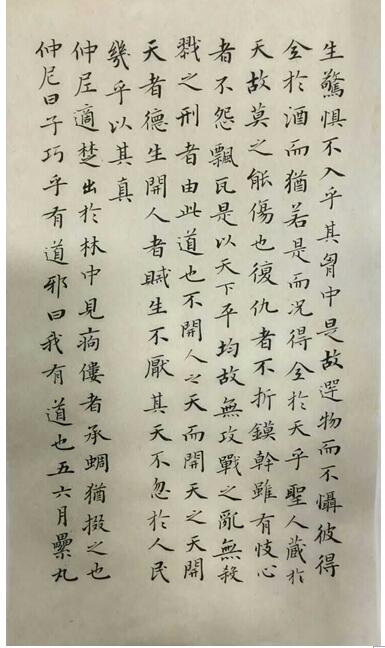 生驚懼不入乎其胷中是故遻物而不慴彼得
全於酒而猶若是而况得全於天乎聖人藏於
天故莫之能傷也復仇者不折鏌幹雖有忮心
者不怨飄瓦是以天下平均故無攻戰之亂無殺
戮之刑者由此道也不開人之天而開天之天開
天者德生開人者賊生不厭其天不忽於人民
幾乎以其真
仲尼適楚出於林中見痀僂者承蜩猶掇之也
仲尼曰子巧乎有道邪曰我有道也五六月纍丸